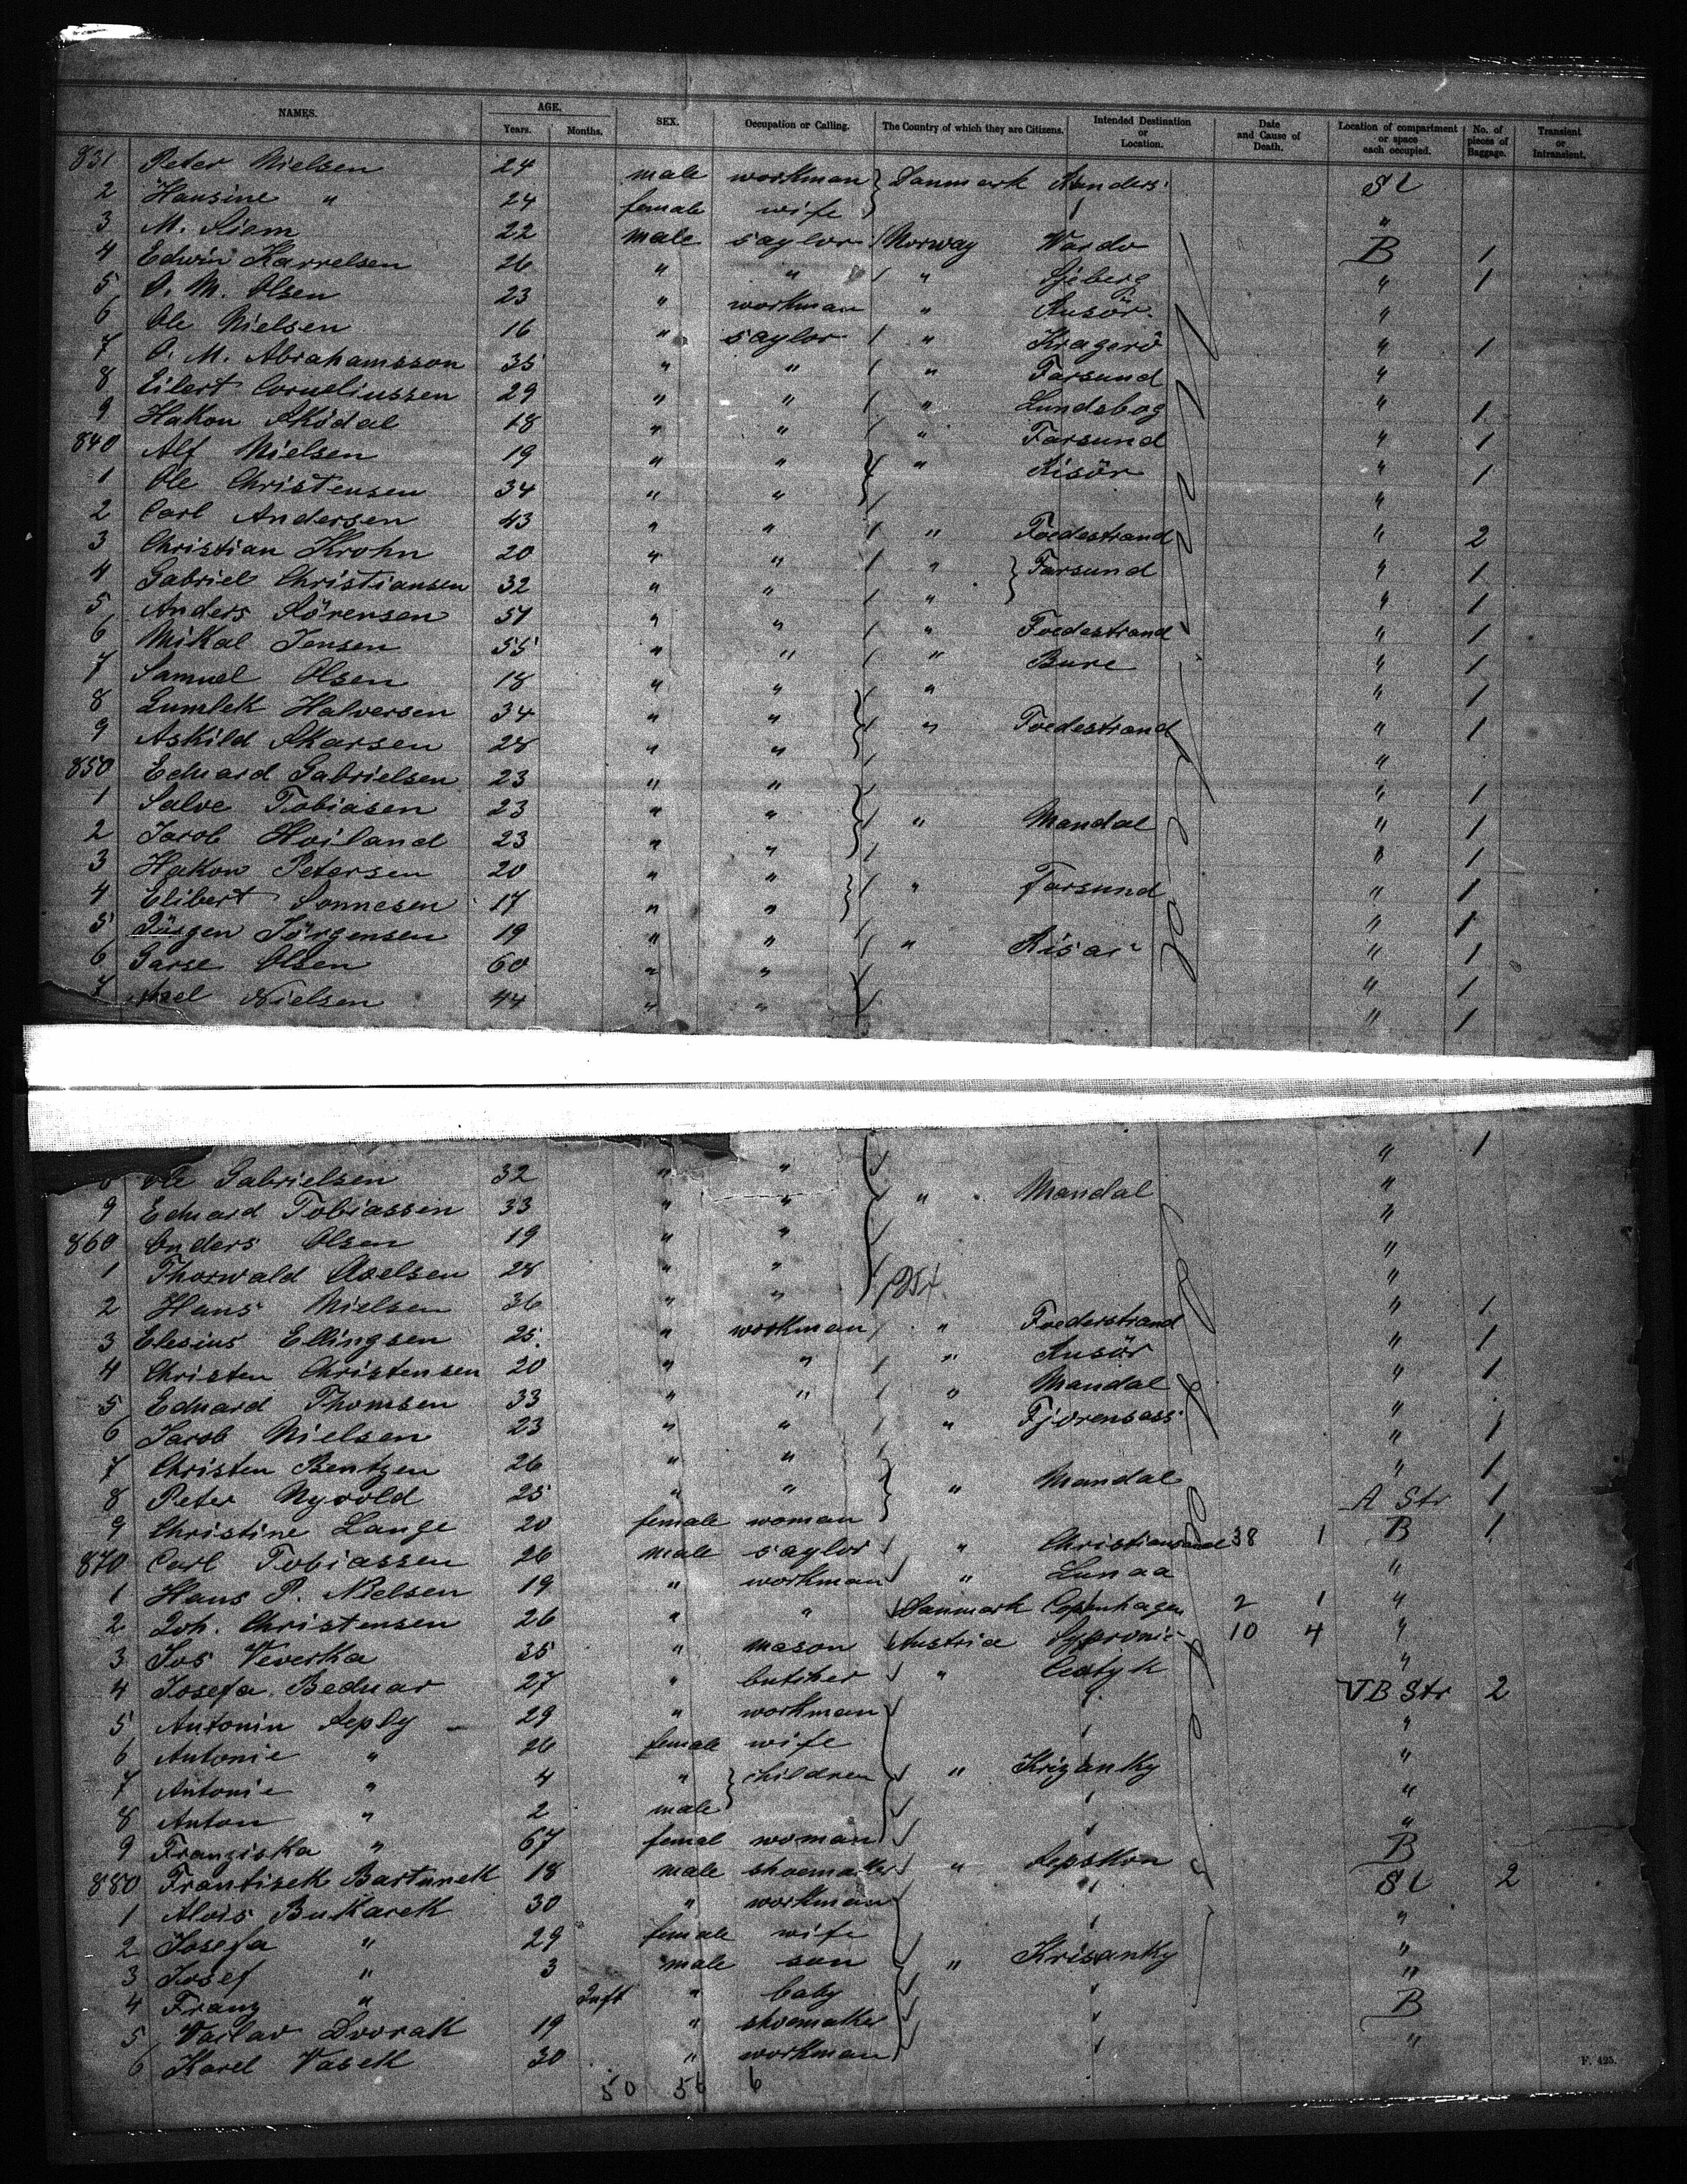 NAMES. AGE. Years. Months. SEX. Occupation or Calling. The Country of which they are Citizens. Intended Destination or Location. Date and Cause of Death. Location of compartment or space each occupied. No. of pieces of Baggage. Transient or Intransient.
831 Peter Nielsen 24 male workman Danmark Randers
2 Hansine " 24 female wife "
3 M. Siem 22 male saylor Norway Wardo B 1
4 Edwin Karrelsen 26 " " " " 1
5 O. M. Olsen 23 " workman " Rusör "
6 Ole Nielsen 16 " saylor " Kragerö " 1
7 O. M. Abrahamsson 35 " " " Farsund "
8 Eilert Corneliussen 29 " " " " 1
9 Hakon Sködal 18 " " " Farsund " 1
840 Alf Nielsen 19 " " " Risör " 1
1 Ole Christensen 34 " " "
2 Carl Andersen 43 " " " Toedestrand " 2
3 Christian Krohn 20 " " " Farsund " 1
4 Gabriel Christiansen 32 " " " " 1
5 Anders Sörensen 51 " " " Toedestrand " 1
6 Mikal Jensen 55 " " " Bure " 1
7 Samuel Olsen 18 " " " " 1
8 Lumlek Halversen 34 " " " Toedestrand " 1
9 Askild Skarsen 28 " " "
850 Eduard Gabrielsen 23 " " " 1
1 Salve Tobiasen 23 " " " Mandal " 1
2 Jacob Hoiland 23 " " " 1
3 Hakon Petersen 20 " " " Farsund " 1
4 Elibert Sonnesen 17 " " " 1
5 Jürgen Jörgensen 19 " " " " 1
6 Garse Olsen 60 " " " 1
7 Nielsen 44 " " " 1
" 1
Ole Gabrielsen 32 " " "
9 Eduard Tobiassen 33 " " " Mandal "
860 Anders Olsen 19 " " "
1 Thorwald Axelsen 28 " " "
2 Hans Nielsen 36 " " " 1
3 Elesius Ellingsen 25 " workman " Toederstrand " 1
4 Christen Christensen 20 " " " Rusör " 1
5 Eduard Thomsen 33 " " " Mandal "
6 Jacob Nielsen 23 " " " " 1
7 Christen Bentzen 26 " " " 1
8 Peter Nyvold 25 " " " Mandal A Str 1
9 Christine Lange 20 female woman B 1
870 Carl Tobiassen 26 male saylor " Christiansand 38 1 "
1 Hans P. Nielsen 19 " workman " Lunaa
2 Joh. Christensen 26 " " Danmark Copenhagen 2 1 "
3 Jos Veverka 35 " mason Austria 10 4 "
4 Josefa Bednar 27 " butcher " VB Str 2
5 Antonin Seply 29 " workman "
6 Antonie " 26 female wife "
7 Antonie " 4 " children " Krizanky "
8 Anton " 2 male "
9 Franziska " 67 femal woman B
880 Frantisek Bartunek 18 male shoemaker " SC 2
1 Alois Bukacek 30 " workman "
2 Josefa " 29 female wife "
3 Josef " 3 male son " Krisanky "
4 Franz " Inft " baby B
5 Vaclav Dvorak 19 " shoemaker "
6 Karel Vasek 30 " workman
50 56 6
F. 425.